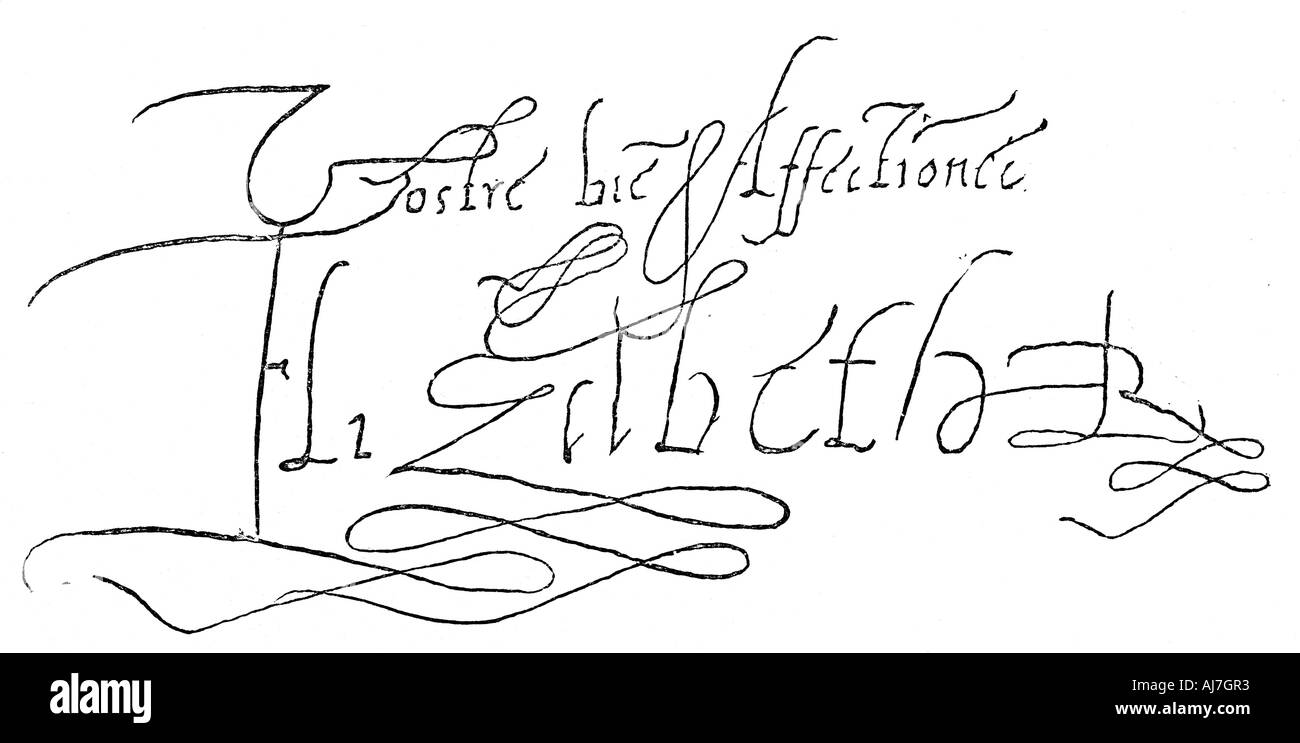 Vostre biē Affectionée
Elizabeth R
alamy
Image ID: AJ7GR3
www.alamy.com